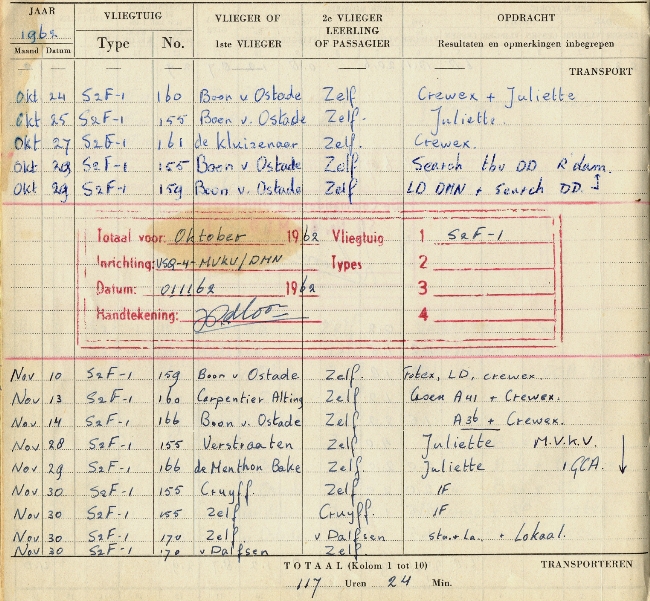 JAAR VLIEGTUIG VLIEGER OF 2e VLIEGER OPDRACHT
1962 LEERLING
Maand Datum Type No. 1ste VLIEGER OF PASSAGIER Resultaten en opmerkingen inbegrepen
TRANSPORT
Okt 24 S2F-1 160 Boon v Ostade Zelf Crewex + Juliette
Okt 25 S2F-1 155 Boon v. Ostade Zelf. Juliette.
Okt 27 S2F-1 161 de Kluizenaer Zelf. Crewex.
Okt 28 S2F-1 155 Boon v Ostade Zelf Search tbv DD R'dam.
Okt 29 S2F-1 159 Boon v. Ostade Zelf LD DMN + Search DD.
Totaal voor: Oktober 1962 Vliegtuig 1 S2F-1
Inrichting: VSQ-4-MVKV/DMN Types 2
Datum: 011162 1962 3
Handtekening: 4
Nov 10 S2F-1 159 Boon v Ostade Zelf. Fotex, LD, crewex.
Nov 13 S2F-1 160 Carpentier Alting Zelf. A41 + Crewex.
Nov 14 S2F-1 166 Boon v. Ostade Zelf. A36 + Crewex.
Nov 28 S2F-1 155 Verstraaten Zelf Juliette M.V.K.V.
Nov 29 S2F-1 166 de Menthon Bake Zelf. Juliette , GCA.
Nov 30 S2F-1 155 Cruyff. Zelf IF
Nov 30 S2F-1 155 Zelf Cruyff. IF
Nov 30 S2F-1 170 Zelf v Dalfsen sta.+La. + Lokaal.
Nov 30 S2F-1 170 v Dalfsen Zelf
TOTAAL (Kolom 1 tot 10) TRANSPORTEREN
117 Uren 24 Min.